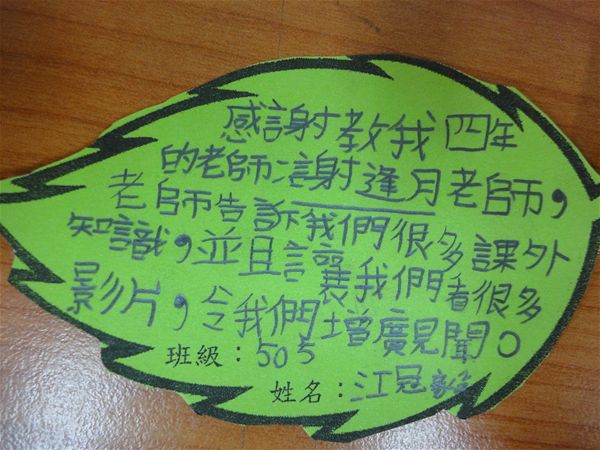 感謝教我四年
的老師:謝逢月老師,
老師告訴我們很多課外
知識,並且讓我們看很多
影片,令我們增廣見聞。
班級:505
姓名:江冠毅